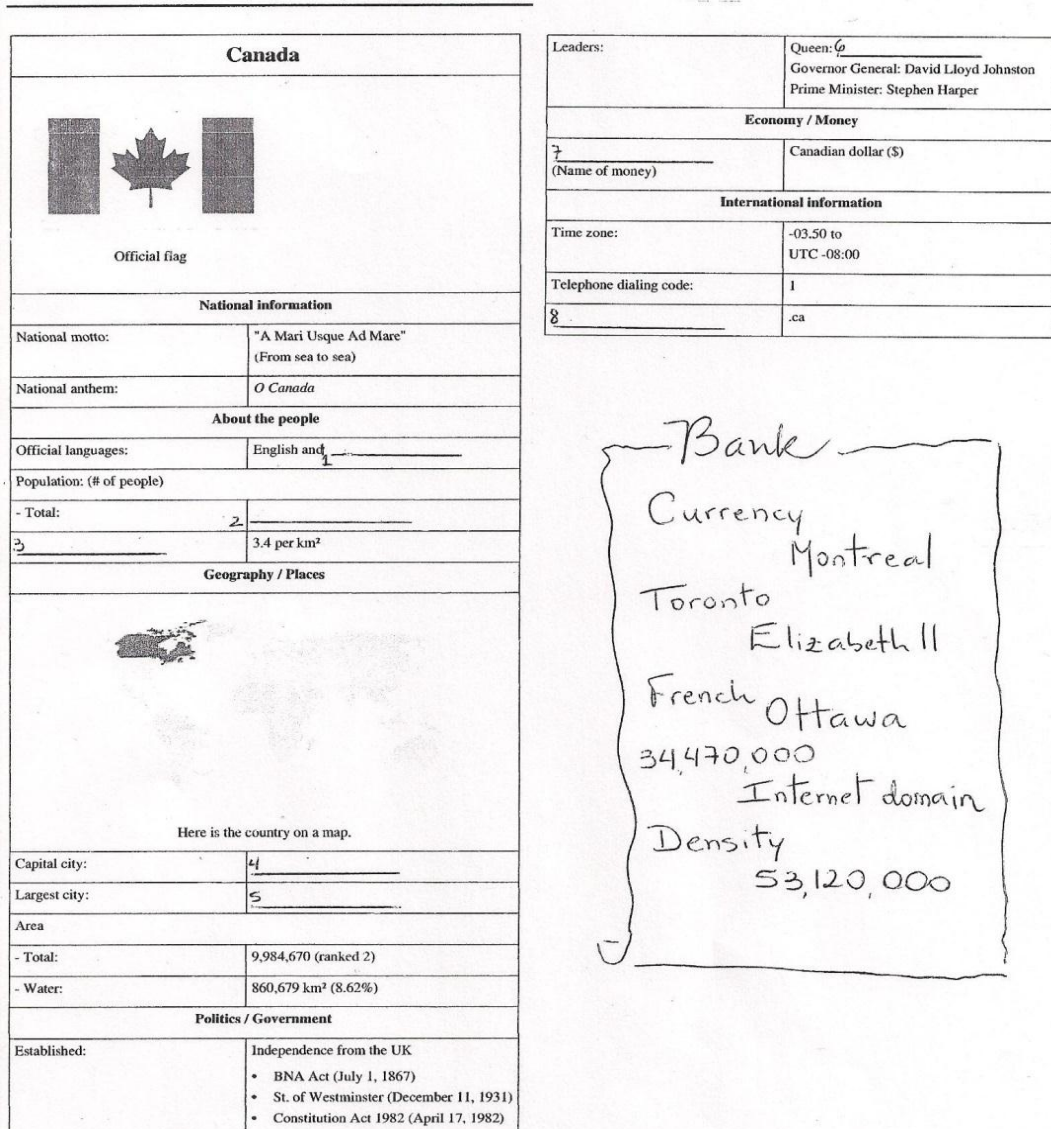 Canada
Official flag
National information
National motto: "A Mari Usque Ad Mare"
(From sea to sea)
National anthem: O Canada
About the people
Official languages: English and 1
Population: (# of people)
- Total: 2
3 3.4 per km²
Geography / Places
Here is the country on a map.
Capital city: 4
Largest city: 5
Area
- Total: 9,984,670 (ranked 2)
- Water: 860,679 km² (8.62%)
Politics / Government
Established: Independence from the UK
• BNA Act (July 1, 1867)
• St. of Westminster (December 11, 1931)
• Constitution Act 1982 (April 17, 1982)
Leaders: Queen: 6
Governor General: David Lloyd Johnston
Prime Minister: Stephen Harper
Economy / Money
7 Canadian dollar ($)
(Name of money)
International information
Time zone: -03.50 to
UTC -08:00
Telephone dialing code: 1
8 .ca
Bank
Currency
Montreal
Toronto
Elizabeth II
French
Ottawa
34,470,000
Internet domain
Density
53,120,000